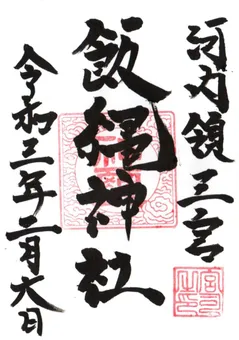 河内領三宮
飯縄神社
令和三年二月六日